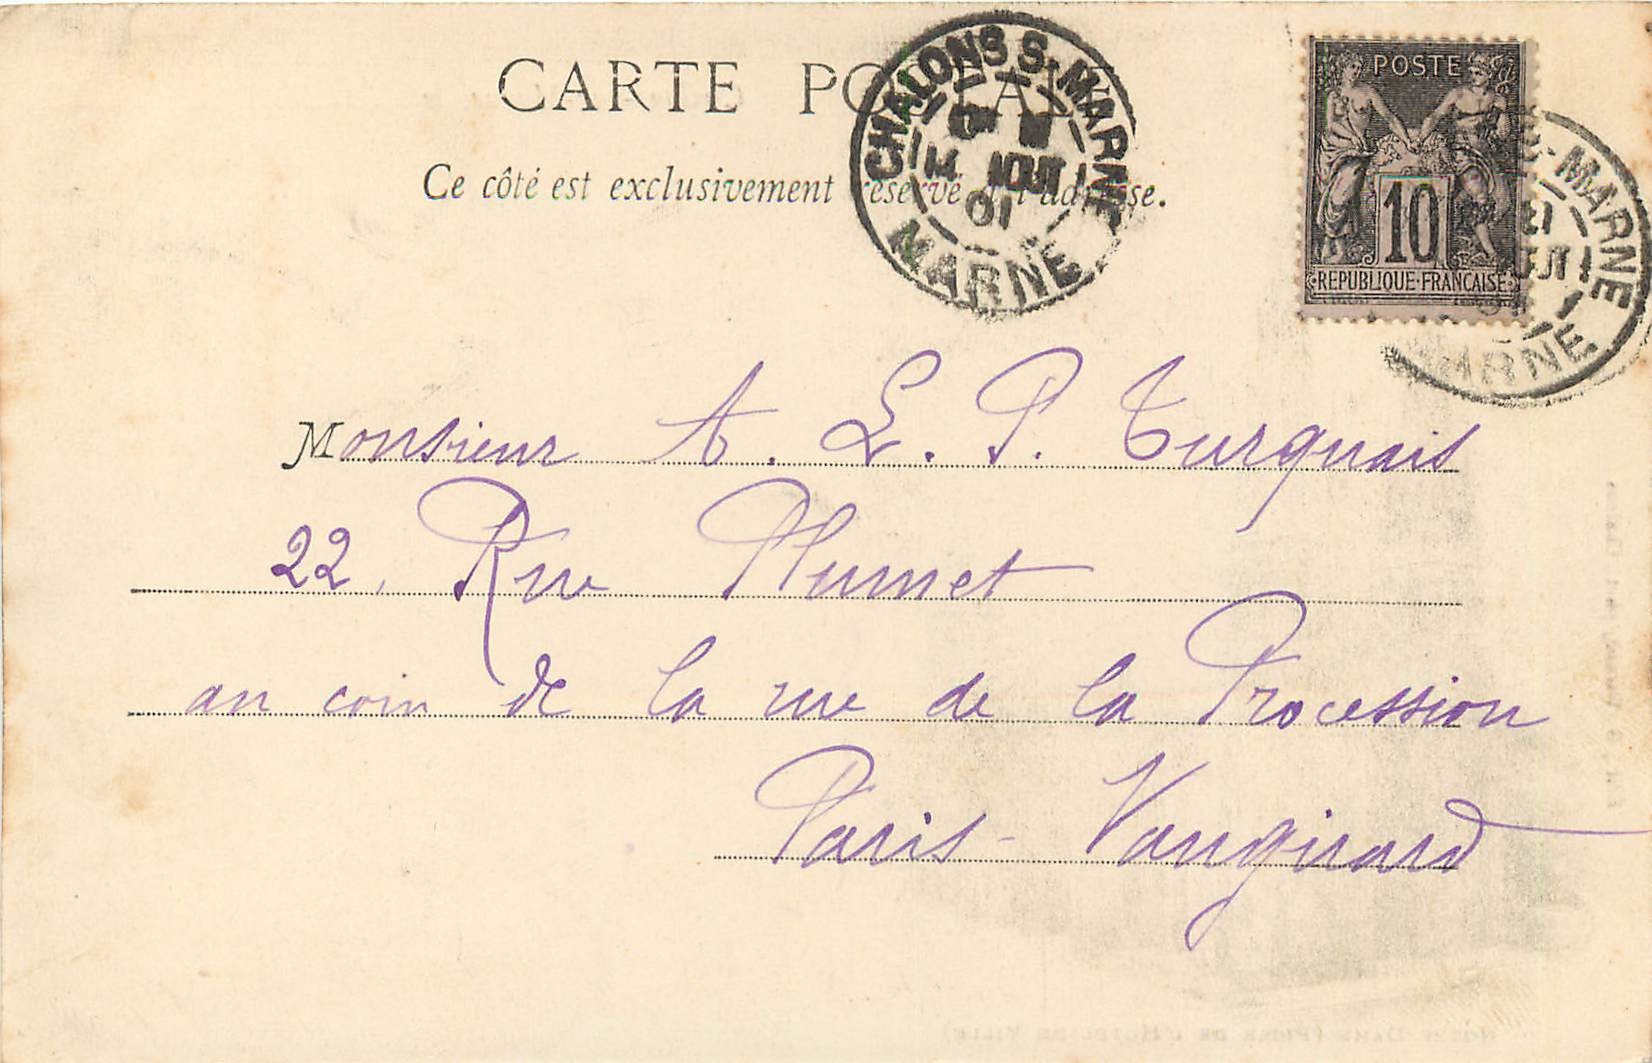 CARTE POSTALE
Ce côté est exclusivement réservé à l'adresse.
CHALONS S-MARNE
14 AOUT
01
MARNE
POSTE
10
REPUBLIQUE FRANCAISE
S-MARNE
MARNE
Monsieur A. L. P. Turquais
22, Rue Plumet
au coin de la rue de la Procession
Paris - Vaugirard